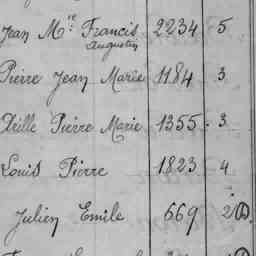 Jean Mie Francis 2234 5
Augustin
Pierre Jean Marie 1184 3
Pierre Marie 1355 3
Louis Pierre 1823 4
Julien Emile 669 2